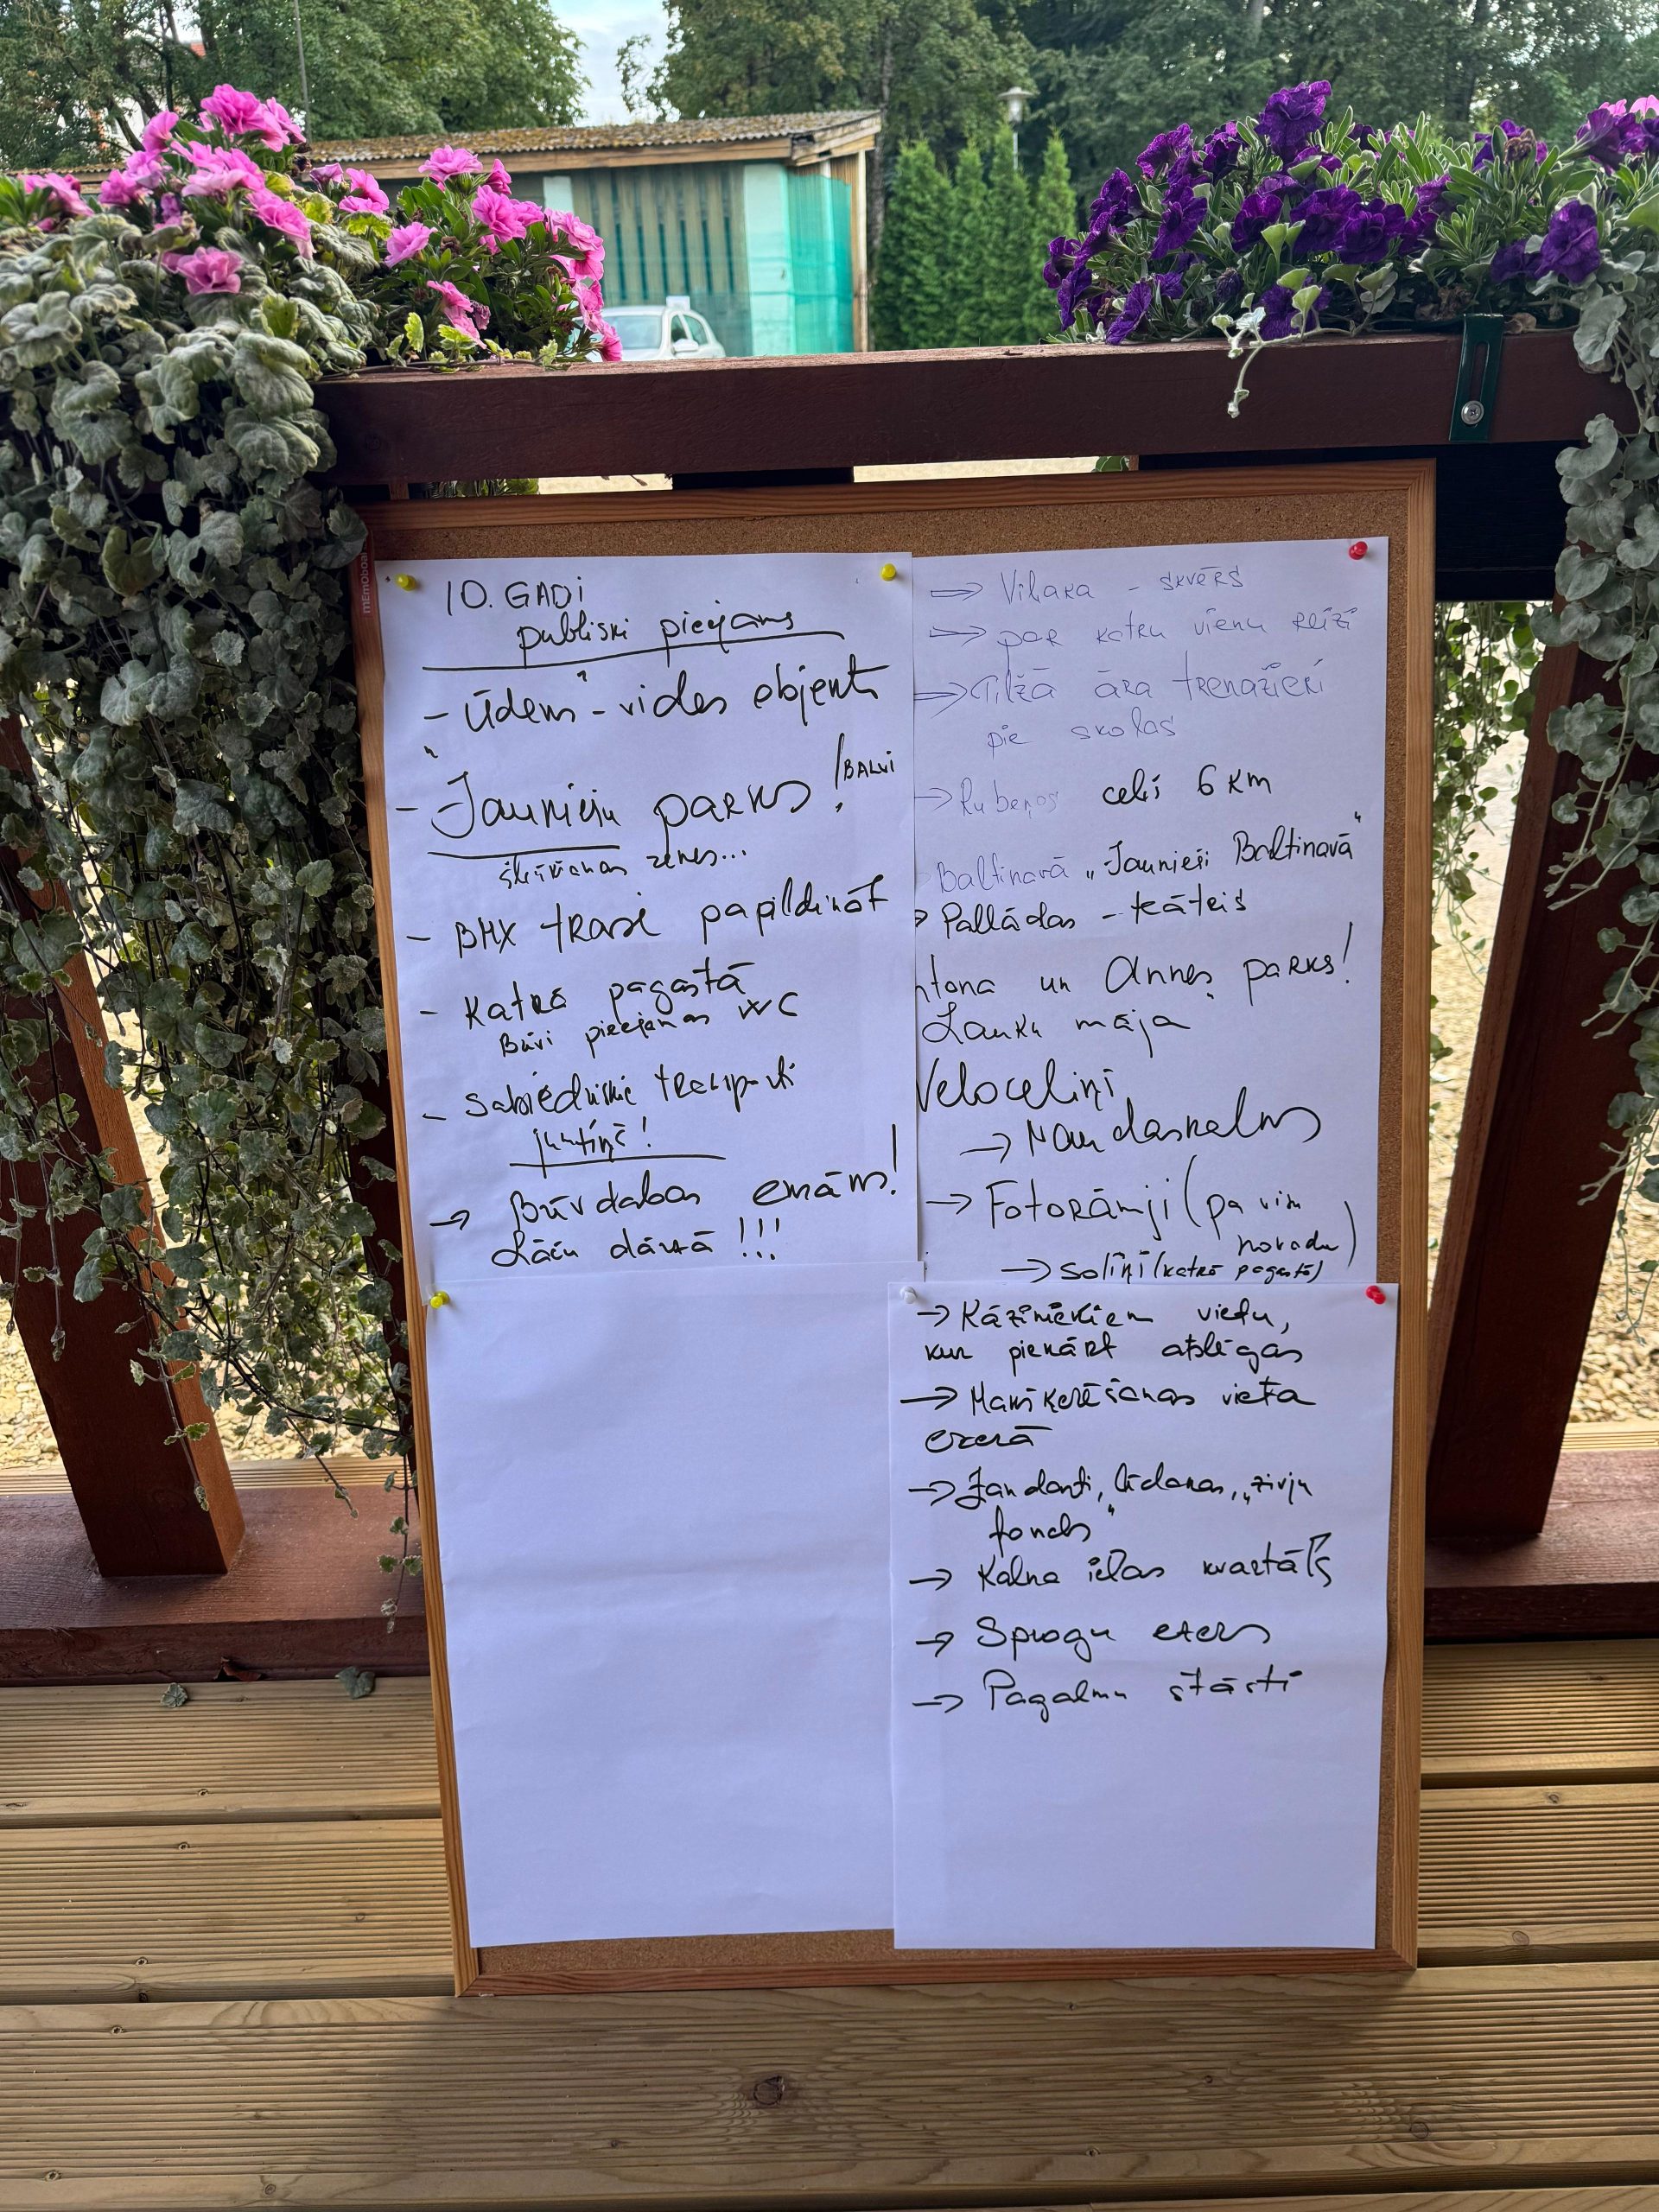 10. GADI
publiski pieejams
- "Ūdens" - vides objekts
- Jauniešu parks! /BALVI
šķēršanas zenes...
- BMX trase papildināt
- Katrā pagastā
Būvi pieejamas WC
- Sabiedriskie transporti
jumtiņš!
→ Būv dabas emāms!
Lāču dārzā !!!
→ Viļaka - skvērs
→ par katru vienu reizi
→ Tilžā āra trenažieri
pie skolas
→ Rubeņos celiņš 6 km
Baltinavā „Jaunieši Baltinavā"
→ Pallādas - teātris
ntona un Annes parks!
Lauku māja
Veloceliņi
→ Naudaskalns
→ Fotorāmji (pa visu
novadu)
→ soliņi (katrā pagastā)
→ Kāzinēkiem vietu,
kur piekārt atslēgas
→ Makšķerēšanas vieta
ezerā
→ Zandarti, līdakas, „zivju
fonds"
→ Kalna ielas kvartāls
→ Sprogu ezers
→ Pagalmu stāsti
mEmOboar